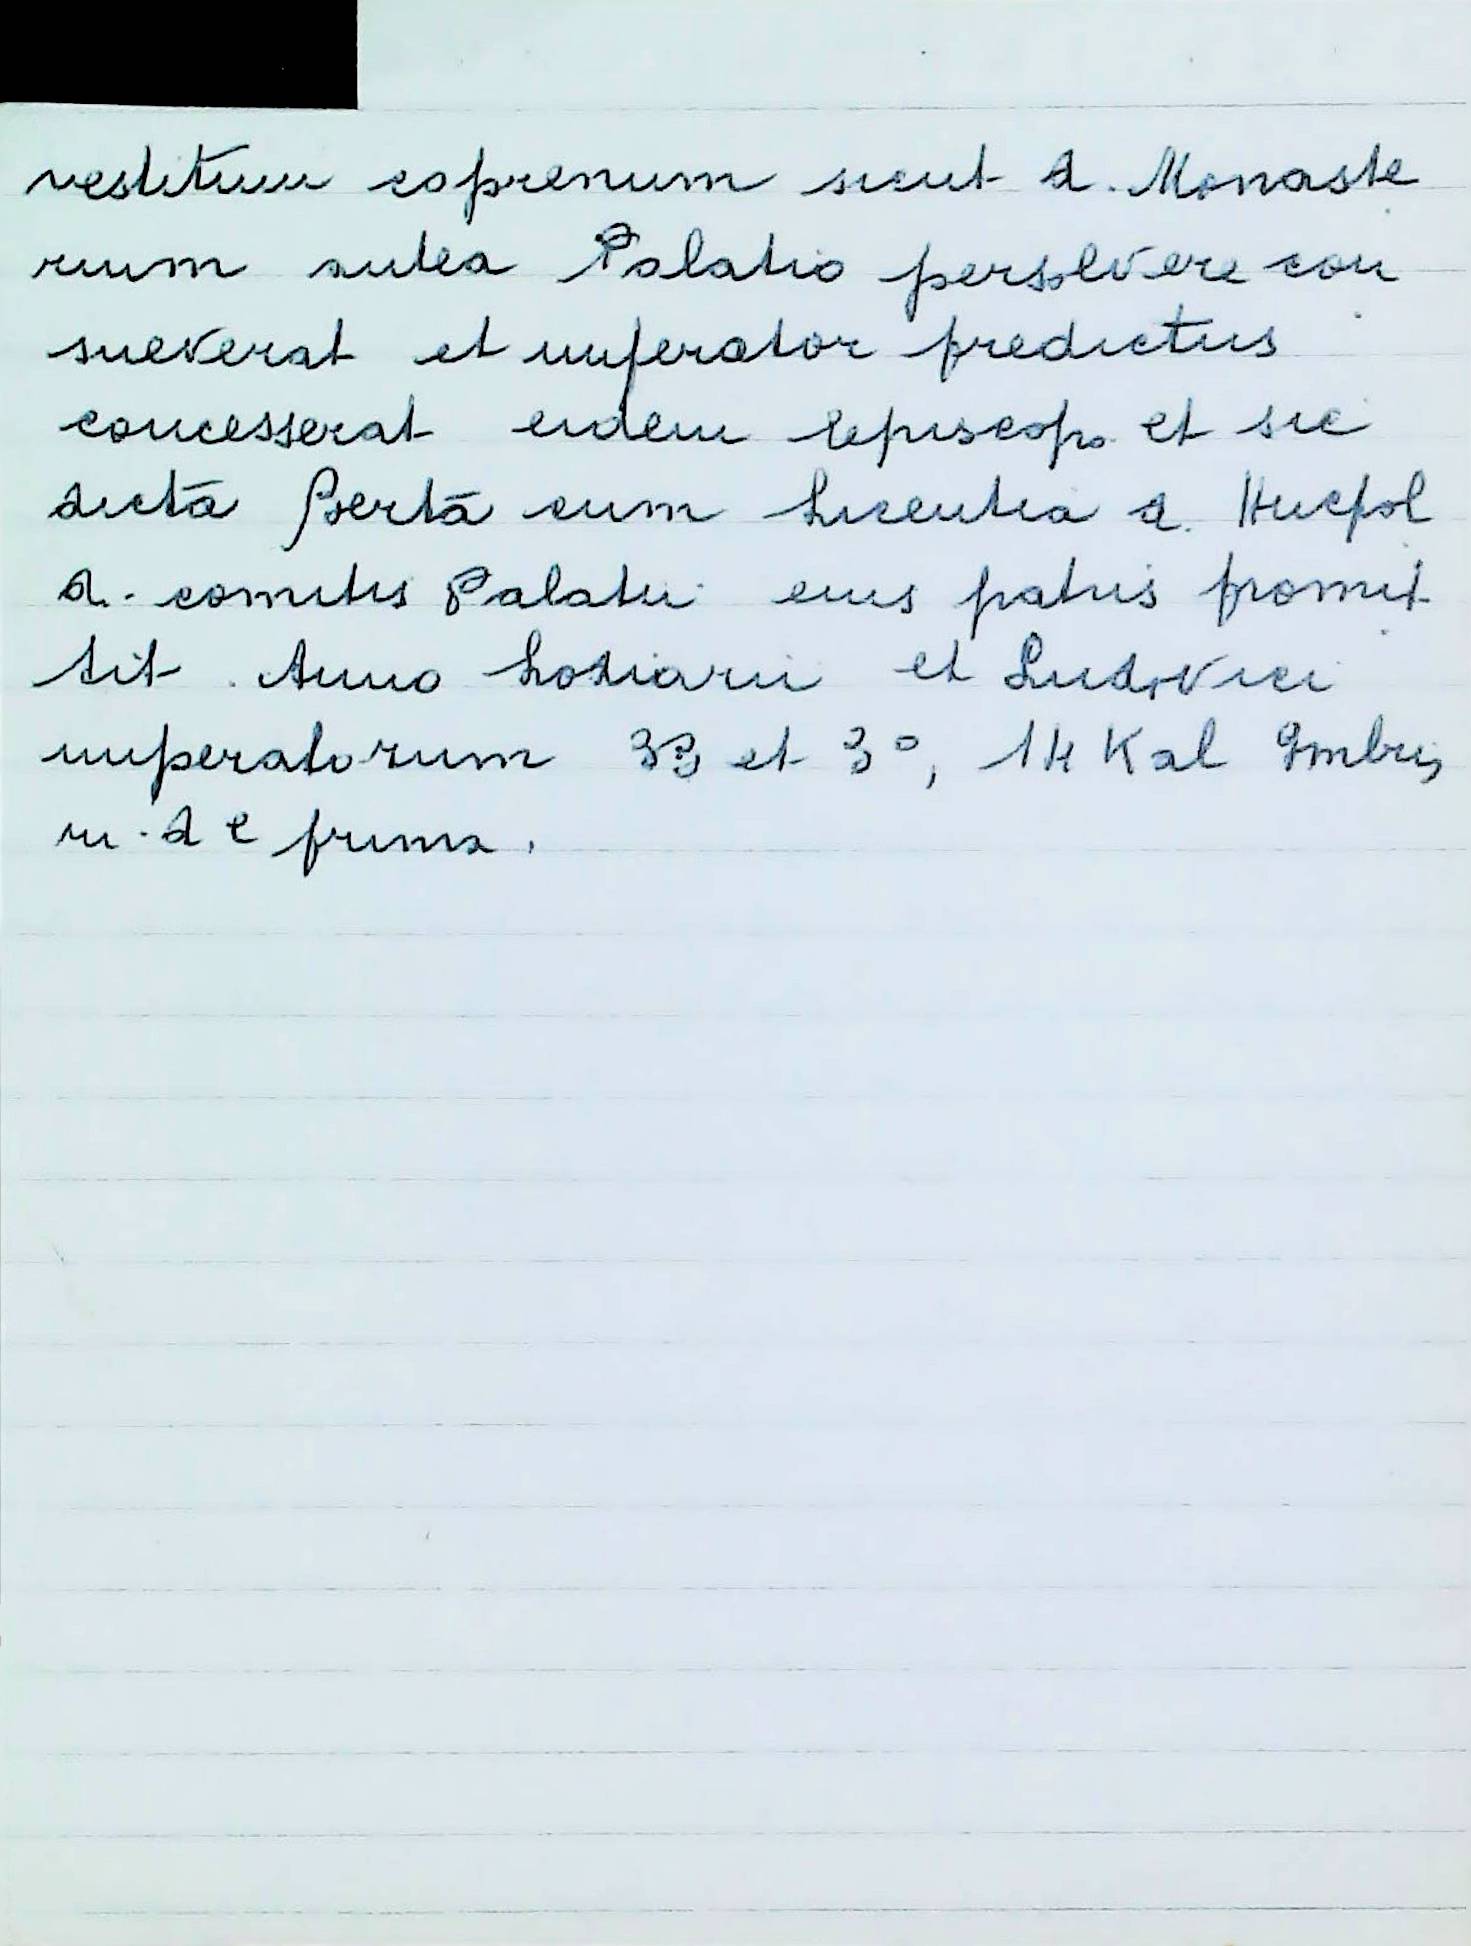 vestitum caprenum sicut d. Monaste
rium antea Palatio persolvere con
sueverat et imperator predictus
concesserat eidem Episcopo et sic
dictā Bertā cum Licentia d. Hucpol
d. comitis Palatii eius patris promit
tit. Anno Lotharii et Ludovici
imperatorum 33 et 3º, 14 Kal 9mbris
prima.